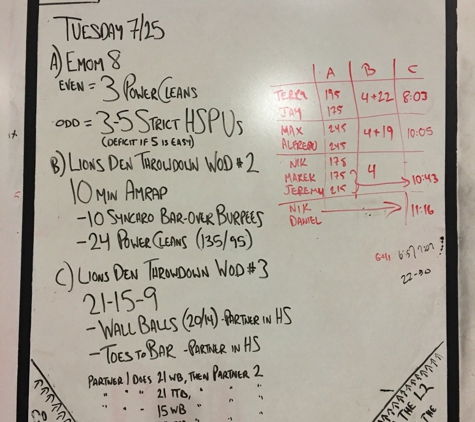 TUESDAY 7/25
A) EMOM 8
EVEN = 3 POWER CLEANS
ODD = 3-5 STRICT HSPUs
(DEFICIT IF 5 IS EASY)
B) LIONS DEN THROWDOWN WOD #2
10 MIN AMRAP
-10 SYNCHRO BAR-OVER BURPEES
-24 POWER CLEANS (135/95)
C) LIONS DEN THROWDOWN WOD #3
21-15-9
-WALL BALLS (20/14) -PARTNER IN HS
-TOES TO BAR -PARTNER IN HS
PARTNER 1 DOES 21 WB, THEN PARTNER 2
" " " 21 TTB, " "
" " " 15 WB
A B C
TERRY 195 4+22 8:03
JAY 175
MAX 245 4+19 10:05
ALFREDO 245
NIK 175 4
MAREK 175 10:43
JEREMY 215
NIK 11:16
DANIEL
22-30
THE L2
THE